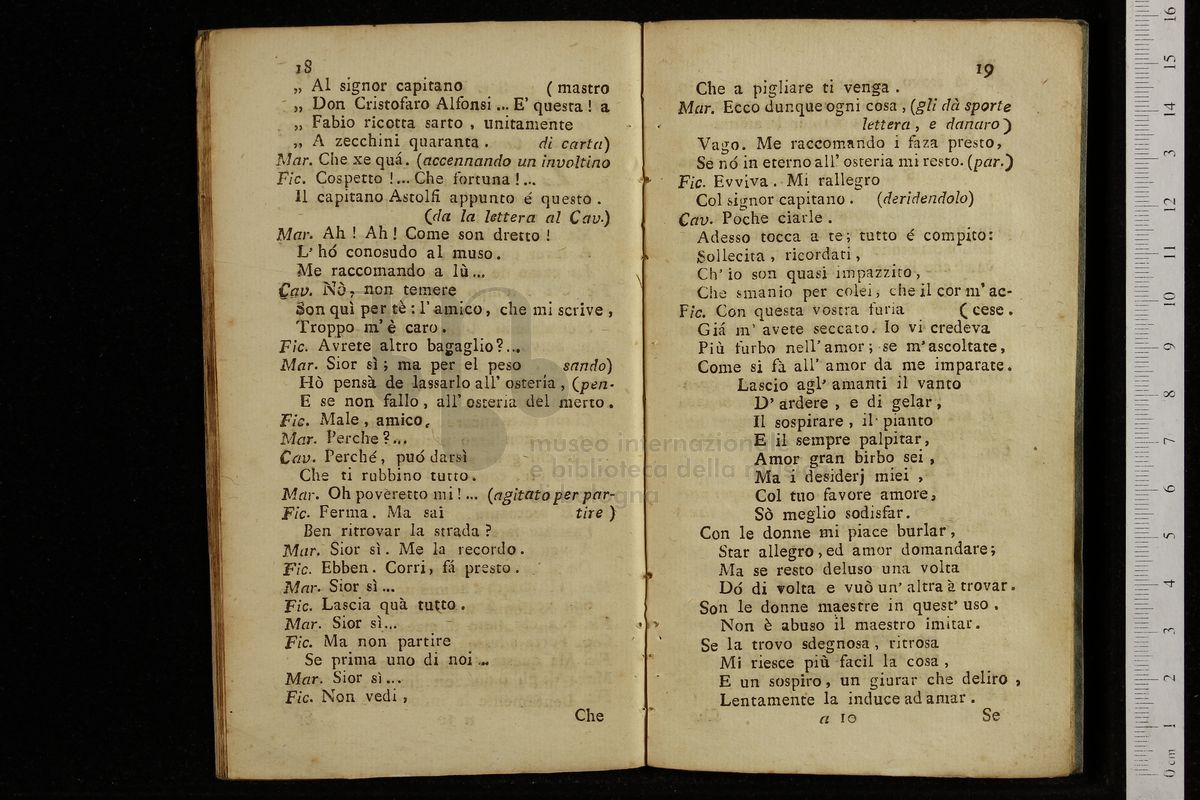 18
„ Al signor capitano ( mastro
„ Don Cristofaro Alfonsi ... E' questa ! a
„ Fabio ricotta sarto , unitamente
„ A zecchini quaranta . di carta)
Mar. Che xe quá. (accennando un involtino
Fic. Cospetto !... Che fortuna !...
Il capitano Astolfi appunto é questo .
(da la lettera al Cav.)
Mar. Ah ! Ah ! Come son dretto !
L' hó conosudo al muso.
Me raccomando a lù ...
Cav. Nò, non temere
Son quì per tè : l' amico , che mi scrive ,
Troppo m' è caro .
Fic. Avrete altro bagaglio ?...
Mar. Sior sì ; ma per el peso sando)
Hò pensà de lassarlo all' osteria , (pen-
E se non fallo , all' osteria del merto .
Fic. Male , amico.
Mar. Perche ?...
Cav. Perché, puó darsì
Che ti rubbino tutto .
Mar. Oh poveretto mi !... (agitato per par-
Fic. Ferma . Ma sai tire )
Ben ritrovar la strada ?
Mar. Sior sì . Me la recordo .
Fic. Ebben . Corri, fá presto .
Mar. Sior sì ...
Fic. Lascia quà tutto .
Mar. Sior sì...
Fic. Ma non partire
Se prima uno di noi ...
Mar. Sior sì ...
Fic. Non vedi ,
Che
19
Che a pigliare ti venga .
Mar. Ecco dunque ogni cosa , (gli dà sporte
lettera , e danaro )
Vago. Me raccomando i faza presto,
Se nó in eterno all' osteria mi resto. (par.)
Fic. Evviva . Mi rallegro
Col signor capitano . (deridendolo)
Cav. Poche ciarle .
Adesso tocca a te; tutto é compito:
Sollecita , ricordati ,
Ch' io son quasi impazzito ,
Che smanio per colei, che il cor m' ac-
Fic. Con questa vostra furia ( cese .
Giá m' avete seccato. Io vi credeva
Più furbo nell' amor ; se m' ascoltate ,
Come si fà all' amor da me imparate.
Lascio agl' amanti il vanto
D' ardere , e di gelar ,
Il sospirare , il pianto
E il sempre palpitar ,
Amor gran birbo sei ,
Ma i desiderj miei ,
Col tuo favore amore ,
Sò meglio sodisfar .
Con le donne mi piace burlar ,
Star allegro , ed amor domandare ;
Ma se resto deluso una volta
Dó di volta e vuò un' altra à trovar .
Son le donne maestre in quest' uso .
Non è abuso il maestro imitar .
Se la trovo sdegnosa , ritrosa
Mi riesce più facil la cosa ,
E un sospiro, un giurar che deliro ,
Lentamente la induce ad amar .
a 10 Se
museo internazionale
e biblioteca della musica
di bologna
0 cm 1 2 3 4 5 6 7 8 9 10 11 12 13 14 15 16